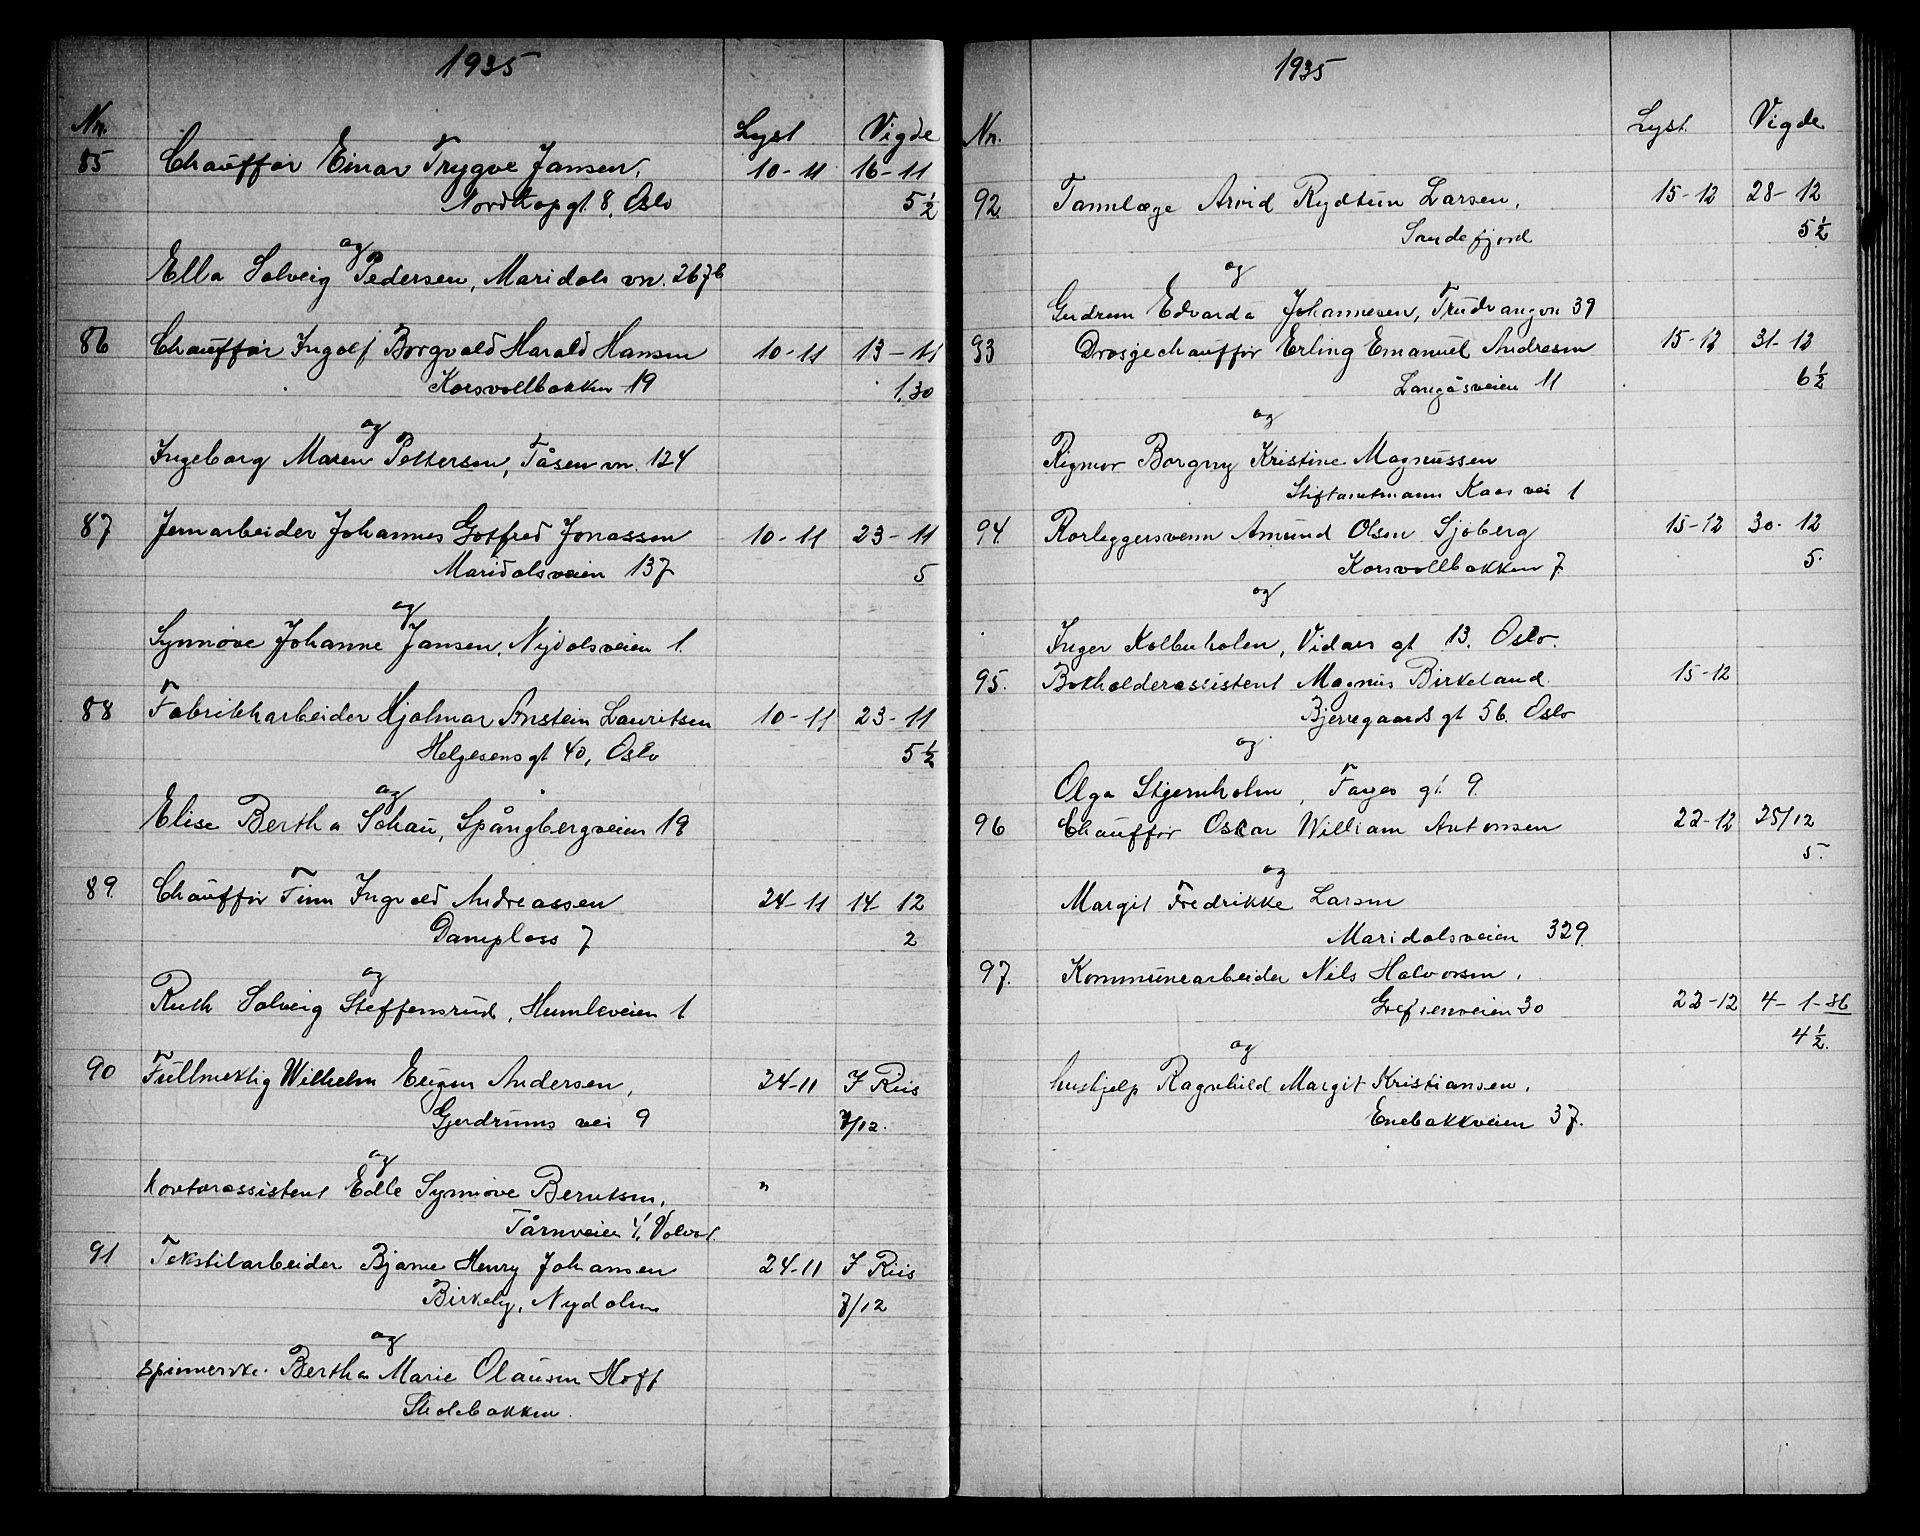 1935
Nr. Lyst Vigde
85 Chauffør Einar Trygve Jansen, 10-11 16-11
Nordkapgt. 8, Oslo 5 1/2
og
Ella Solveig Pedersen, Maridals vn. 267b
86 Chauffør Ingolf Borgvald Harald Hansen 10-11 13-11
Korsvollbakken 19 1.30
og
Ingeborg Maren Pettersen, Tåsen vn. 124
87 Jernarbeider Johannes Gotfred Jonassen 10-11 23-11
Maridalsveien 137 5
og
Synnøve Johanne Jansen, Nydalsveien 1.
88 Fabrikkarbeider Hjalmar Anstein Lauritsen 10-11 23-11
Helgesens gt 40, Oslo 5 1/2
og
Elise Bertha Schau, Spångbergveien 19
89. Chauffør Finn Ingvald Andreassen 24-11 14-12
Damplass 7 2
og
Ruth Solveig Steffensrud, Humleveien 1
90 Fullmektig Wilhelm Eugen Andersen, 24-11 I Riis
Gjerdrums vei 9 7/12.
og
kontorassistent Edle Synnøve Berntsen, "
Tårnveien 4,
91 Tekstilarbeider Bjarne Henry Johansen 24-11 I Riis
Birkely, Nydalen 7/12
og
spinnerske Bertha Marie Olausen Hoff
Skolebakken.
1935
Nr. Lyst Vigde
92 Tannlæge Arvid Rydtun Larsen, 15-12 28-12
Sandefjord 5 1/2
og
Gudrun Edvarda Johannesen, Trudvangvn 39
93 Drosjechauffør Erling Emanuel Andresen 15-12 31-12
Langåsveien 11 6 1/2
og
Rigmor Borgny Kristine Magnussen
Stiftamtmann Kaas vei 1
94. Rørleggersvenn Amund Olsen Sjøberg 15-12 30-12
Korsvollbakken 7. 5.
og
Inger Kolbuholen, Vidars gt 13. Oslo.
95. Bokholderassistent Magnus Birkeland. 15-12
Bjerregaards gt 56. Oslo
og
Olga Stjernholm, Fayes gt. 9.
96 Chauffør Oskar William Antonsen 22-12 25/12
5.
og
Margit Fredrikke Larsen
Maridalsveien 329.
97. Kommunearbeider Nils Halvorsen,
Grefsenveien 30 22-12 4-1-36
4 1/2.
og
hushjelp Ragnhild Margit Kristiansen,
Enebakkveien 37.